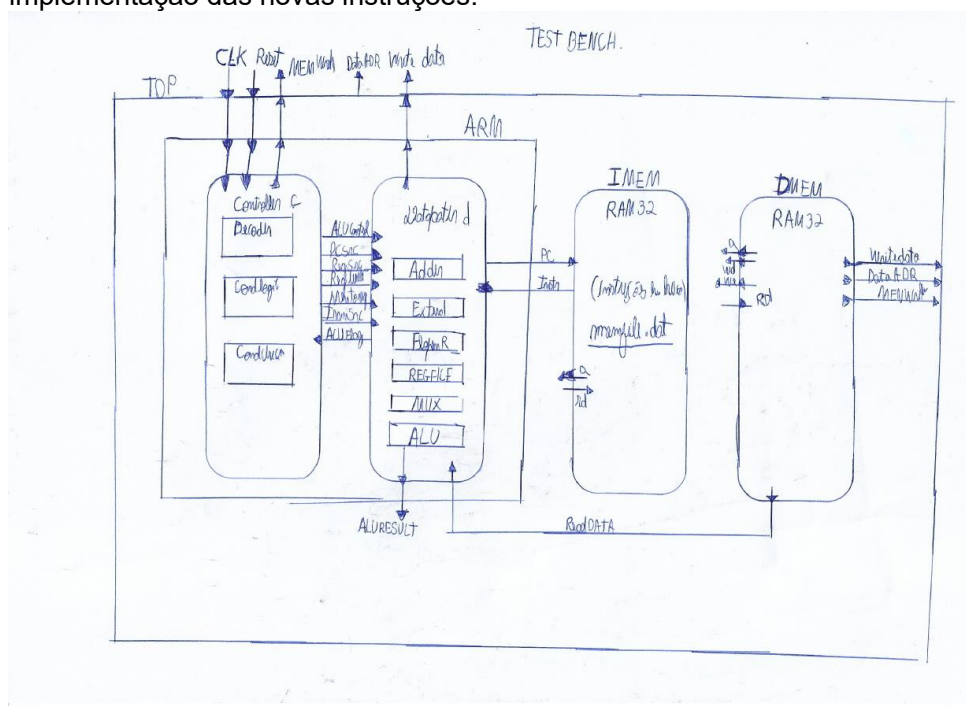 implementação das novas instruções:
TEST BENCH.
CLK Reset MEMWrite DataADR Write data
TOP
ARM
Controller C
Decoder
Condlogic
ALUControl
PCSrc
RegSrc
ImmSrc
ALUFlag
Datapath d
Adder
Extend
REGFILE
MUX
ALU
ALURESULT
PC
Instr
IMEM
RAM32
memfile.dat
a
rd
DMEM
RAM32
a
wd
we
Rd
Writedata
DataADR
MEMWrite
ReadDATA